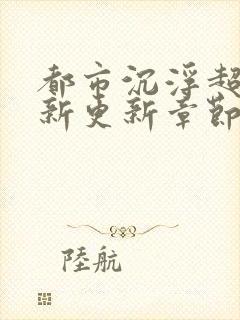 都市沉浮超
新更新章節
陸航